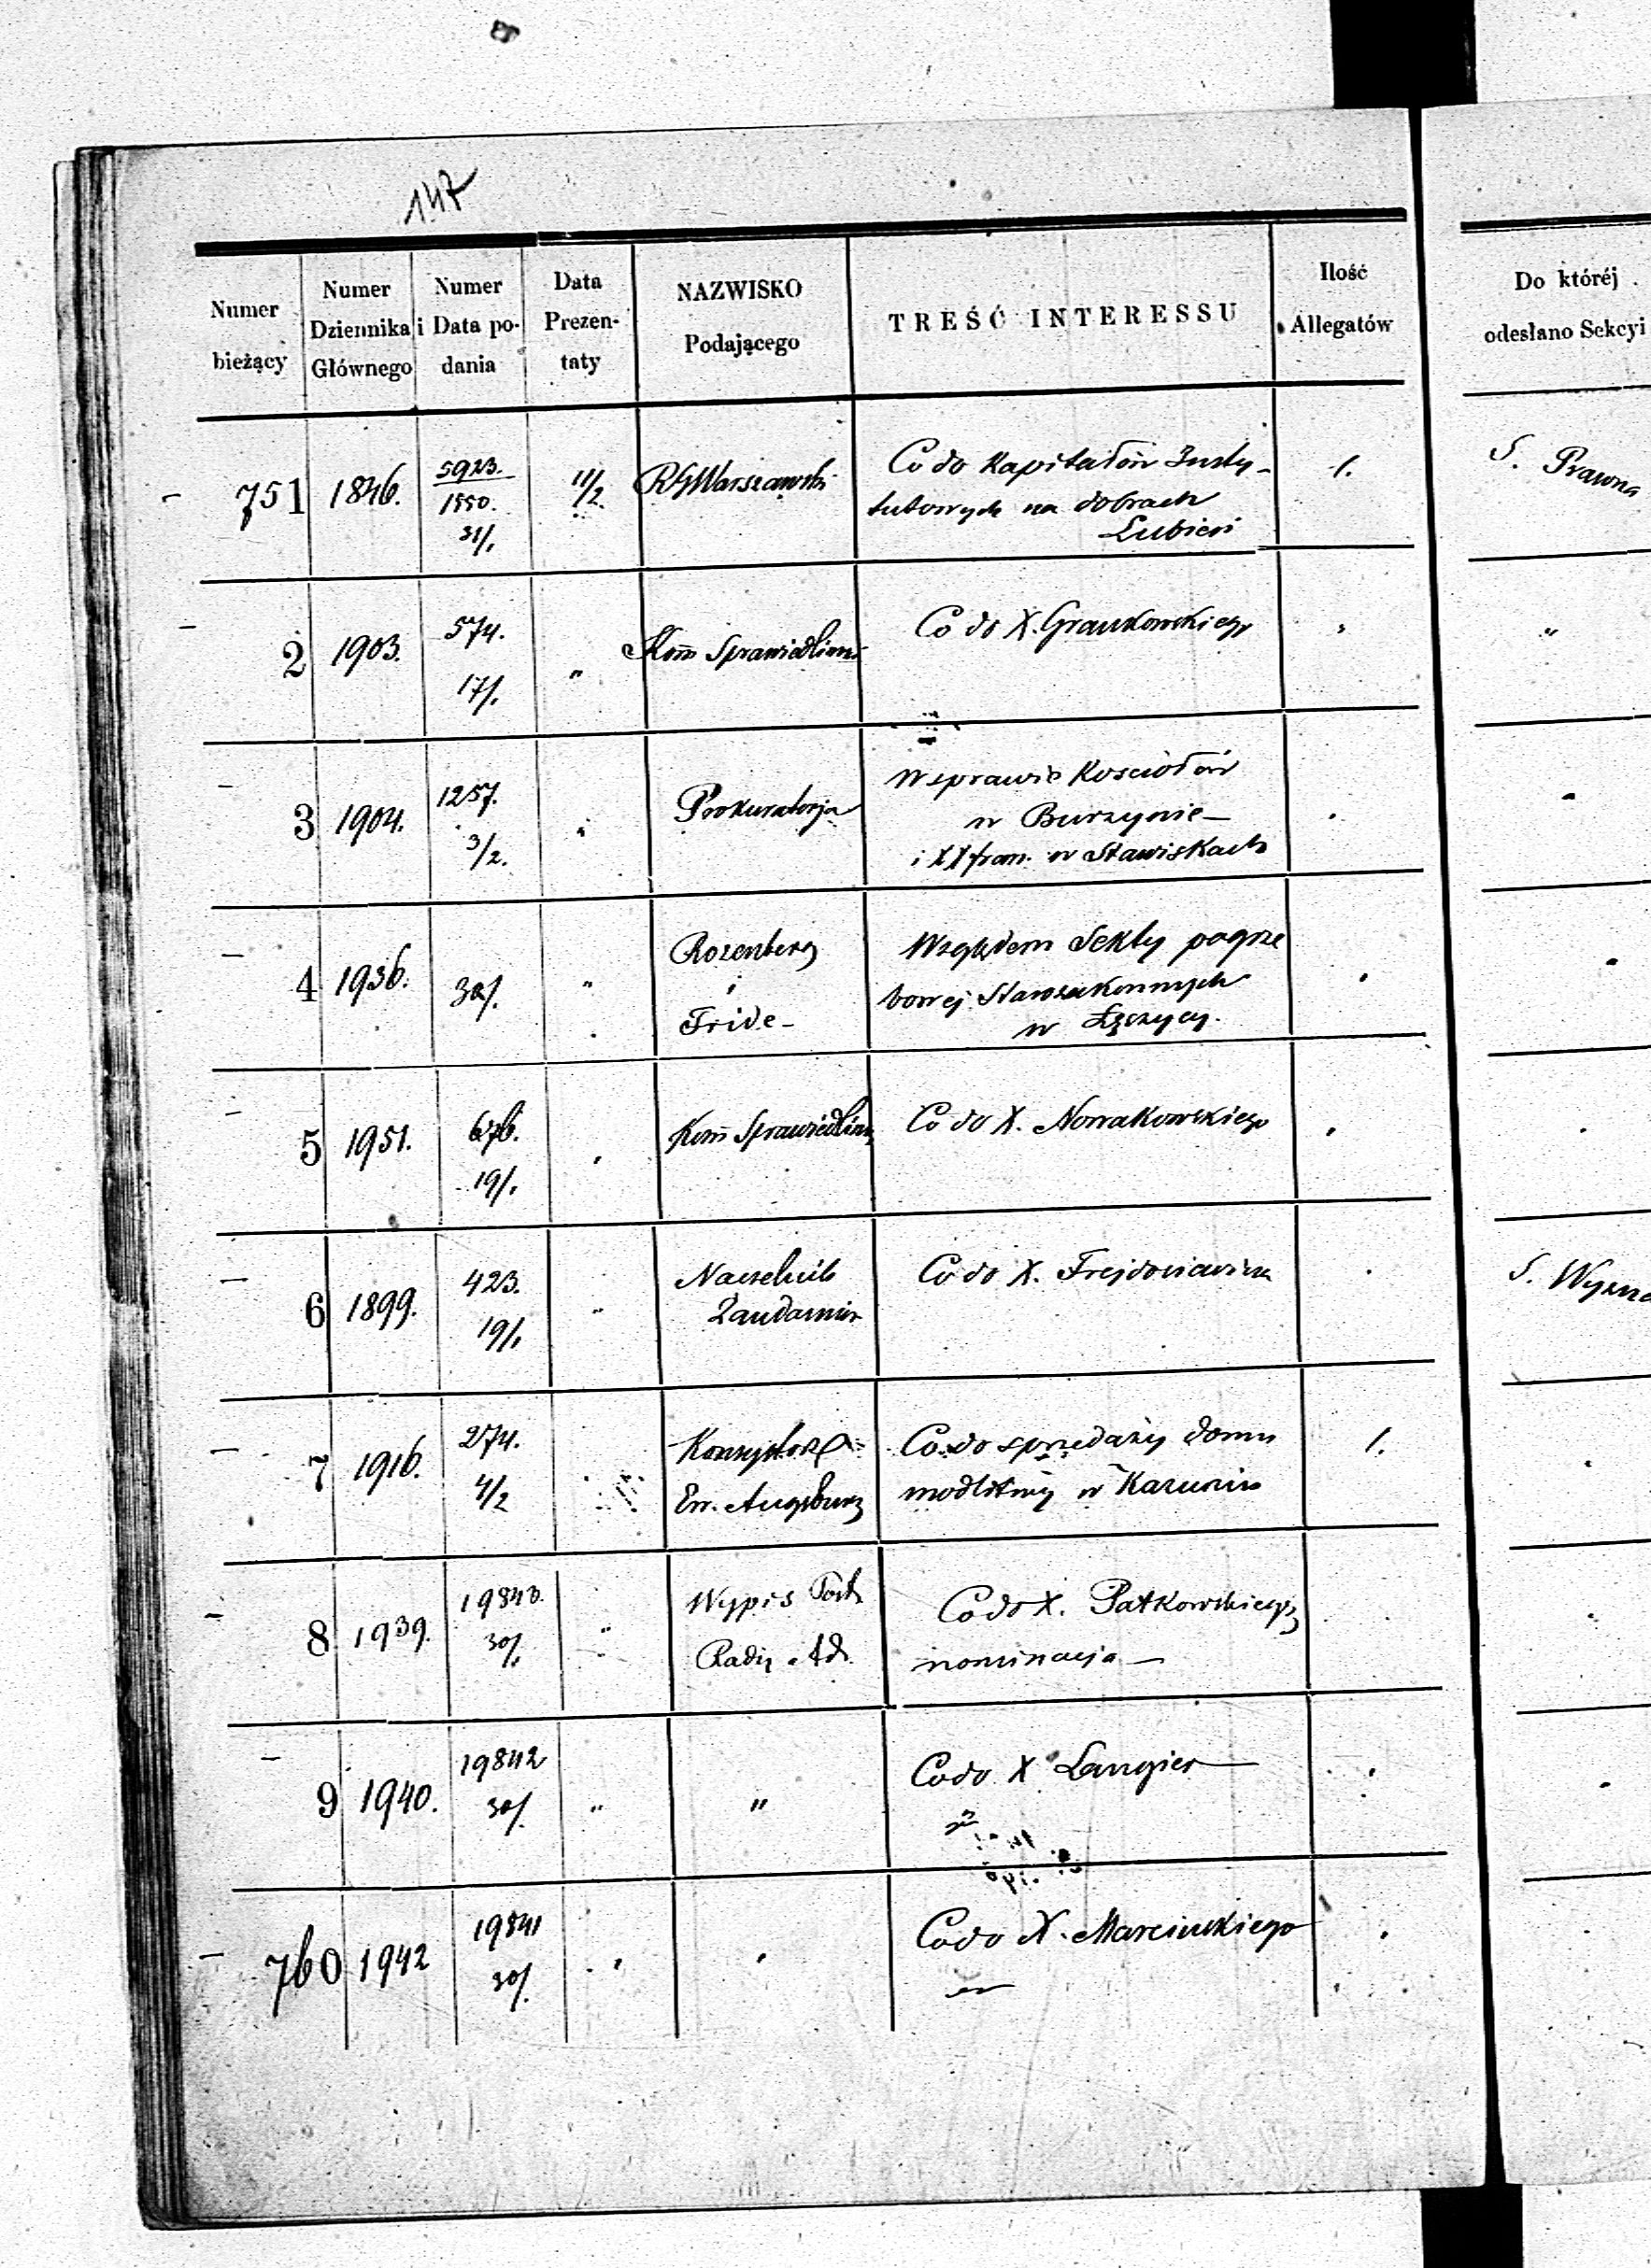 147
Numer bieżący | Numer Dziennika Głównego | Numer i Data podania | Data Prezentaty | NAZWISKO Podającego | TREŚĆ INTERESSU | Ilość Allegatów | Do któréj odesłano Sekcyi
751 1846. 5923. 1850. 31/1 11/2 RG Warszawski Co do Kapitałów Insty-
tutowych na dobrach
Łubień 1. S. Prawna
2 1903. 574. 17/1. " Kom Sprawiedliwoś Co do X. Grankowskiego "
3 1904. 1257. 3/2. " Prokuratorja W sprawie Kościołów
w Burzynie —
i XX fran. w Stawiskach
4 1936. 30/1. " Rozenberg
i
Fride - Względem Sekty pogrze
bowej Starozakonnych
w Łęczycy.
5 1951. 676. 19/1. Kom Sprawiedliwoś Co do X. Nowakowskiego
6 1899. 423. 19/1 " Naczelnik
Żandarmów Co do X. S.
7 1916. 274. 4/2 Konsystorz
Ew. Augsburg Co do sprzedaży domu
modlitwy w 1.
8 1939. 19843. 30/1. " Wypis Prot.
Rady Ad. Co do X. Patkowskiego
nominacja —
9 1940. 19842 30/1. " " Co do X Langier
760 1942 19841 30/1. Co do X. Marcinskiego